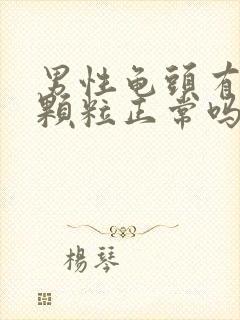 男性龟頭有
顆粒正常吗
楊琴